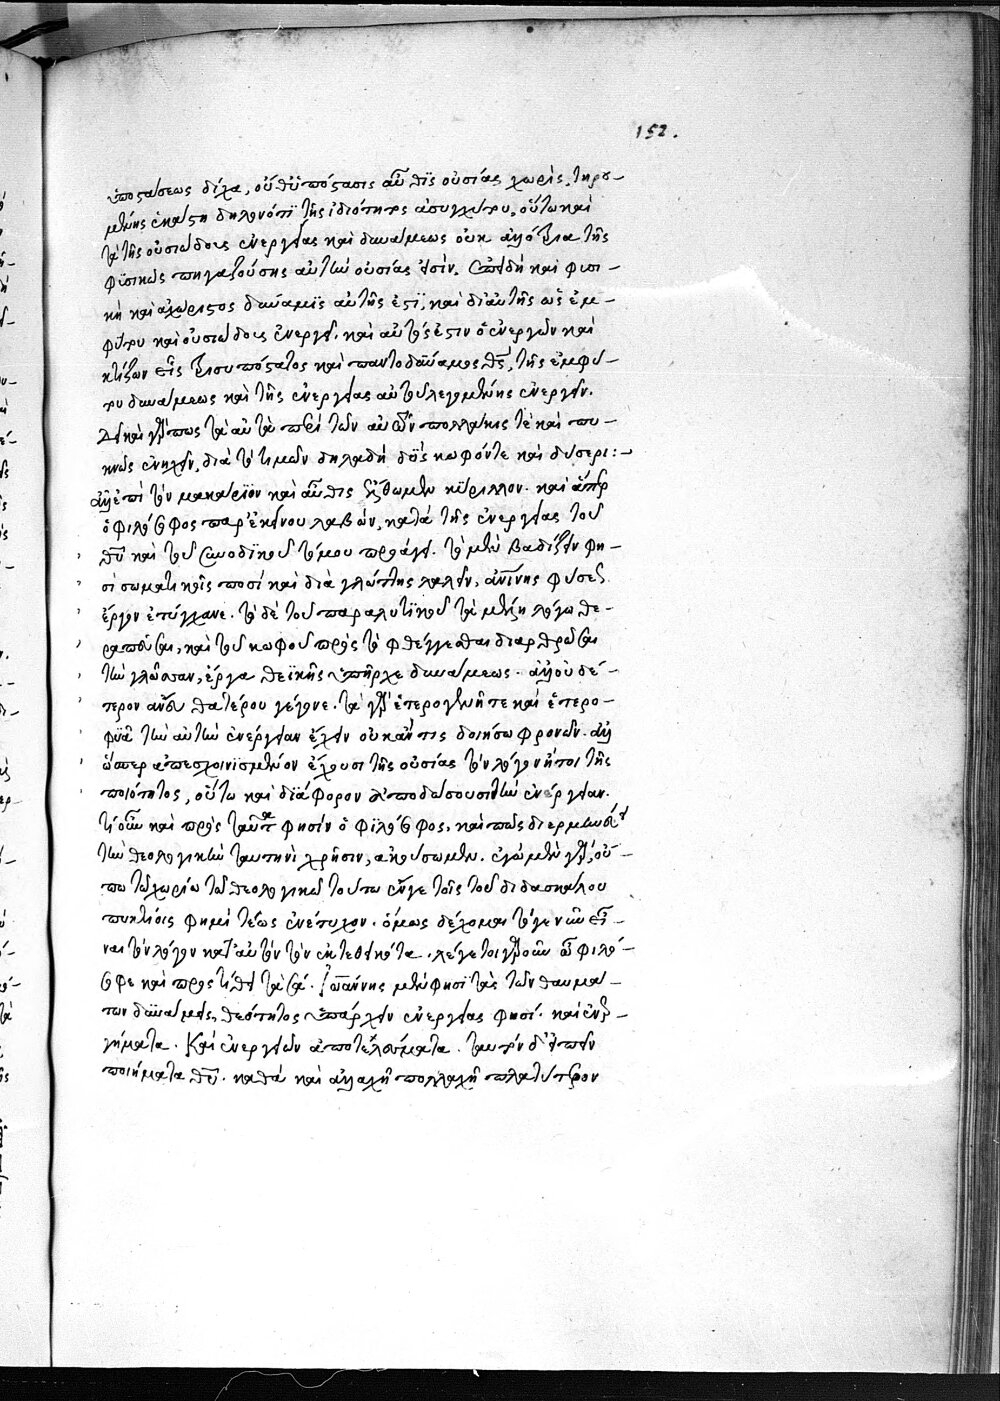 152.
ὑποστάσεως δίχα, οὐθ' ὑπόστασις αὖθις οὐσίας χωρὶς, τηρου-
μένης ἑκάστη δηλονότι τῆς ἰδιότητος ἀσυγχύτου, οὕτω καὶ
τὰ τῆς οὐσιώδους ἐνεργείας καὶ δυνάμεως οὐκ ἀλλότρια τῆς
φυσικῶς πηγαζούσης αὐτὴν οὐσίας εἰσίν. ἐπειδὴ καὶ φυσι-
κὴ καὶ ἀχώριστος δύναμις αὐτῆς ἐστι, καὶ δι' αὐτῆς ὡς ἐμ-
φύτου καὶ οὐσιώδους ἐνεργεῖ. καὶ αὐτός ἐστιν ὁ ἐνεργῶν καὶ
κτίζων εἷς τρισυπόστατος καὶ παντοδύναμος θεὸς, τῆς ἐμφύ-
του δυνάμεως καὶ τῆς ἐνεργείας αὐτοῦ λεγομένης ἐνεργεῖν.
δεῖ καὶ γάρ πως τὰ αὐτὰ περὶ τῶν αὐτῶν πολλάκις τὲ καὶ πυ-
κνῶς ἐνηχεῖν, διὰ τὸ τιμῶν δηλαδὴ τοῖς κωφόν τε καὶ δύσερι:-
ἀλλ' ἐπὶ τὸν μακάριον καὶ αὖθις ἔλθωμεν κύριλλον. καὶ ἅπερ
ὁ φιλόσοφος παρ' ἐκείνου λαβὼν, κατὰ τῆς ἐνεργείας τοῦ
θεοῦ καὶ τοῦ συνοδικοῦ τόμου προάγει. τὸ μὲν βαδίζειν φη-
σὶ σωματικοῖς ποσὶ καὶ διὰ γλώττης λαλεῖν, ἀνθρωπίνης φύσεως
ἔργον ἐτύγχανε. τὸ δὲ τοῦ παραλυτικοῦ τὰ μέλη λόγω θε-
ραπεῦσαι, καὶ τοῦ κωφοῦ πρὸς τὸ φθέγγεσθαι διαρθρῶσαι
τὴν γλῶσσαν, ἔργα θεϊκῆς ὑπῆρχε δυνάμεως. ἀλλ' οὐδέ-
τερον ἄνευ θατέρου γέγονε. τὰ γὰρ ἑτερογενῆ τε καὶ ἑτερο-
φυᾶ τὴν αὐτὴν ἐνέργειαν ἔχειν οὐκ ἄν τις δοίη σωφρονῶν. ἀλλ'
ὥσπερ ἀπεσχοινισμένον ἔχουσι τῆς οὐσίας τὸν λόγον ἤτοι τῆς
ποιότητος, οὕτω καὶ διάφορον ἀποδώσουσι τὴν ἐνέργειαν.
τί οὖν καὶ πρὸς ταῦτα φησὶν ὁ φιλόσοφος, καὶ πῶς διερμηνεύει
τὴν θεολογικὴν ταυτηνὶ χρῆσιν, ἀκούσωμεν. ἐγὼ μὲν γὰρ, οὔ-
πω τῶ χωρίω τῶ θεολογικῶ τούτω ἔν γε τοῖς τοῦ διδασκάλου
πυκτίοις φημὶ τέως ἐνέτυχον. ὅμως δέχομαι τό γε νῦν εἶ-
ναι τὸν λόγον κατ' αὐτὸν τὸν ἐκτεθηκότα. λέγε τοιγαροῦν ὦ φιλό-
σοφε καὶ πρὸς τίθει τὰ σά. Ἰωάννης μὲν φησὶ τὰς τῶν θαυμά-
των δυνάμεις, θεότητος ὑπάρχειν ἐνεργείας φησί. καὶ ἐνερ-
γήματα. Καὶ ἐνεργειῶν ἀποτελούμενα. ταυτὸν δ' εἰπεῖν
ποιήματα θεοῦ. καθὰ καὶ ἀλλαχῆ πολλαχῆ πλατύτερον